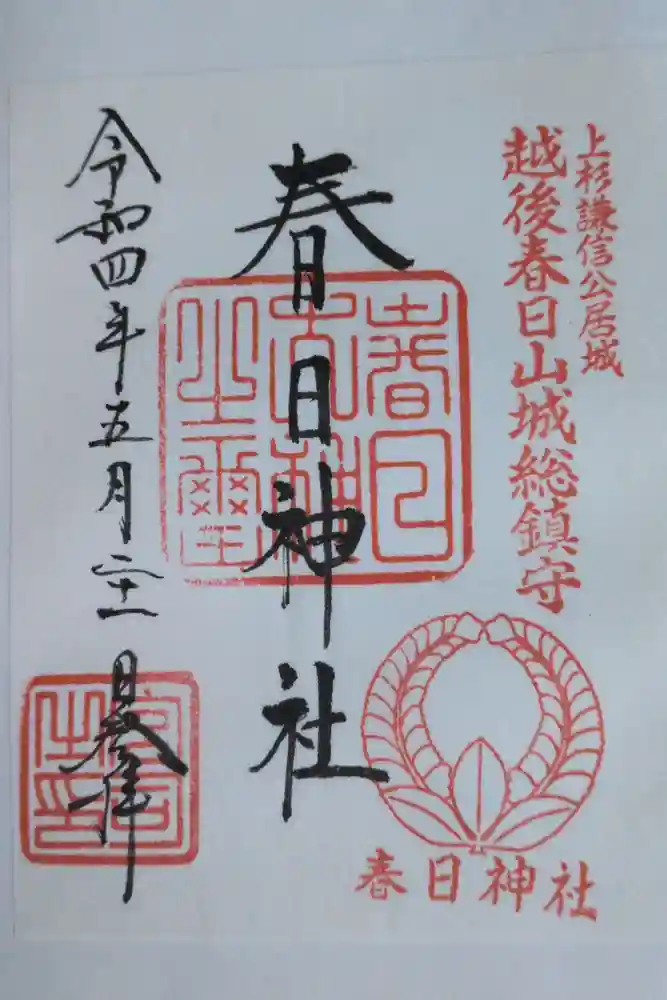 上杉謙信公居城
越後春日山城総鎮守
春日神社
春日神社
令和四年五月二十一日参拝